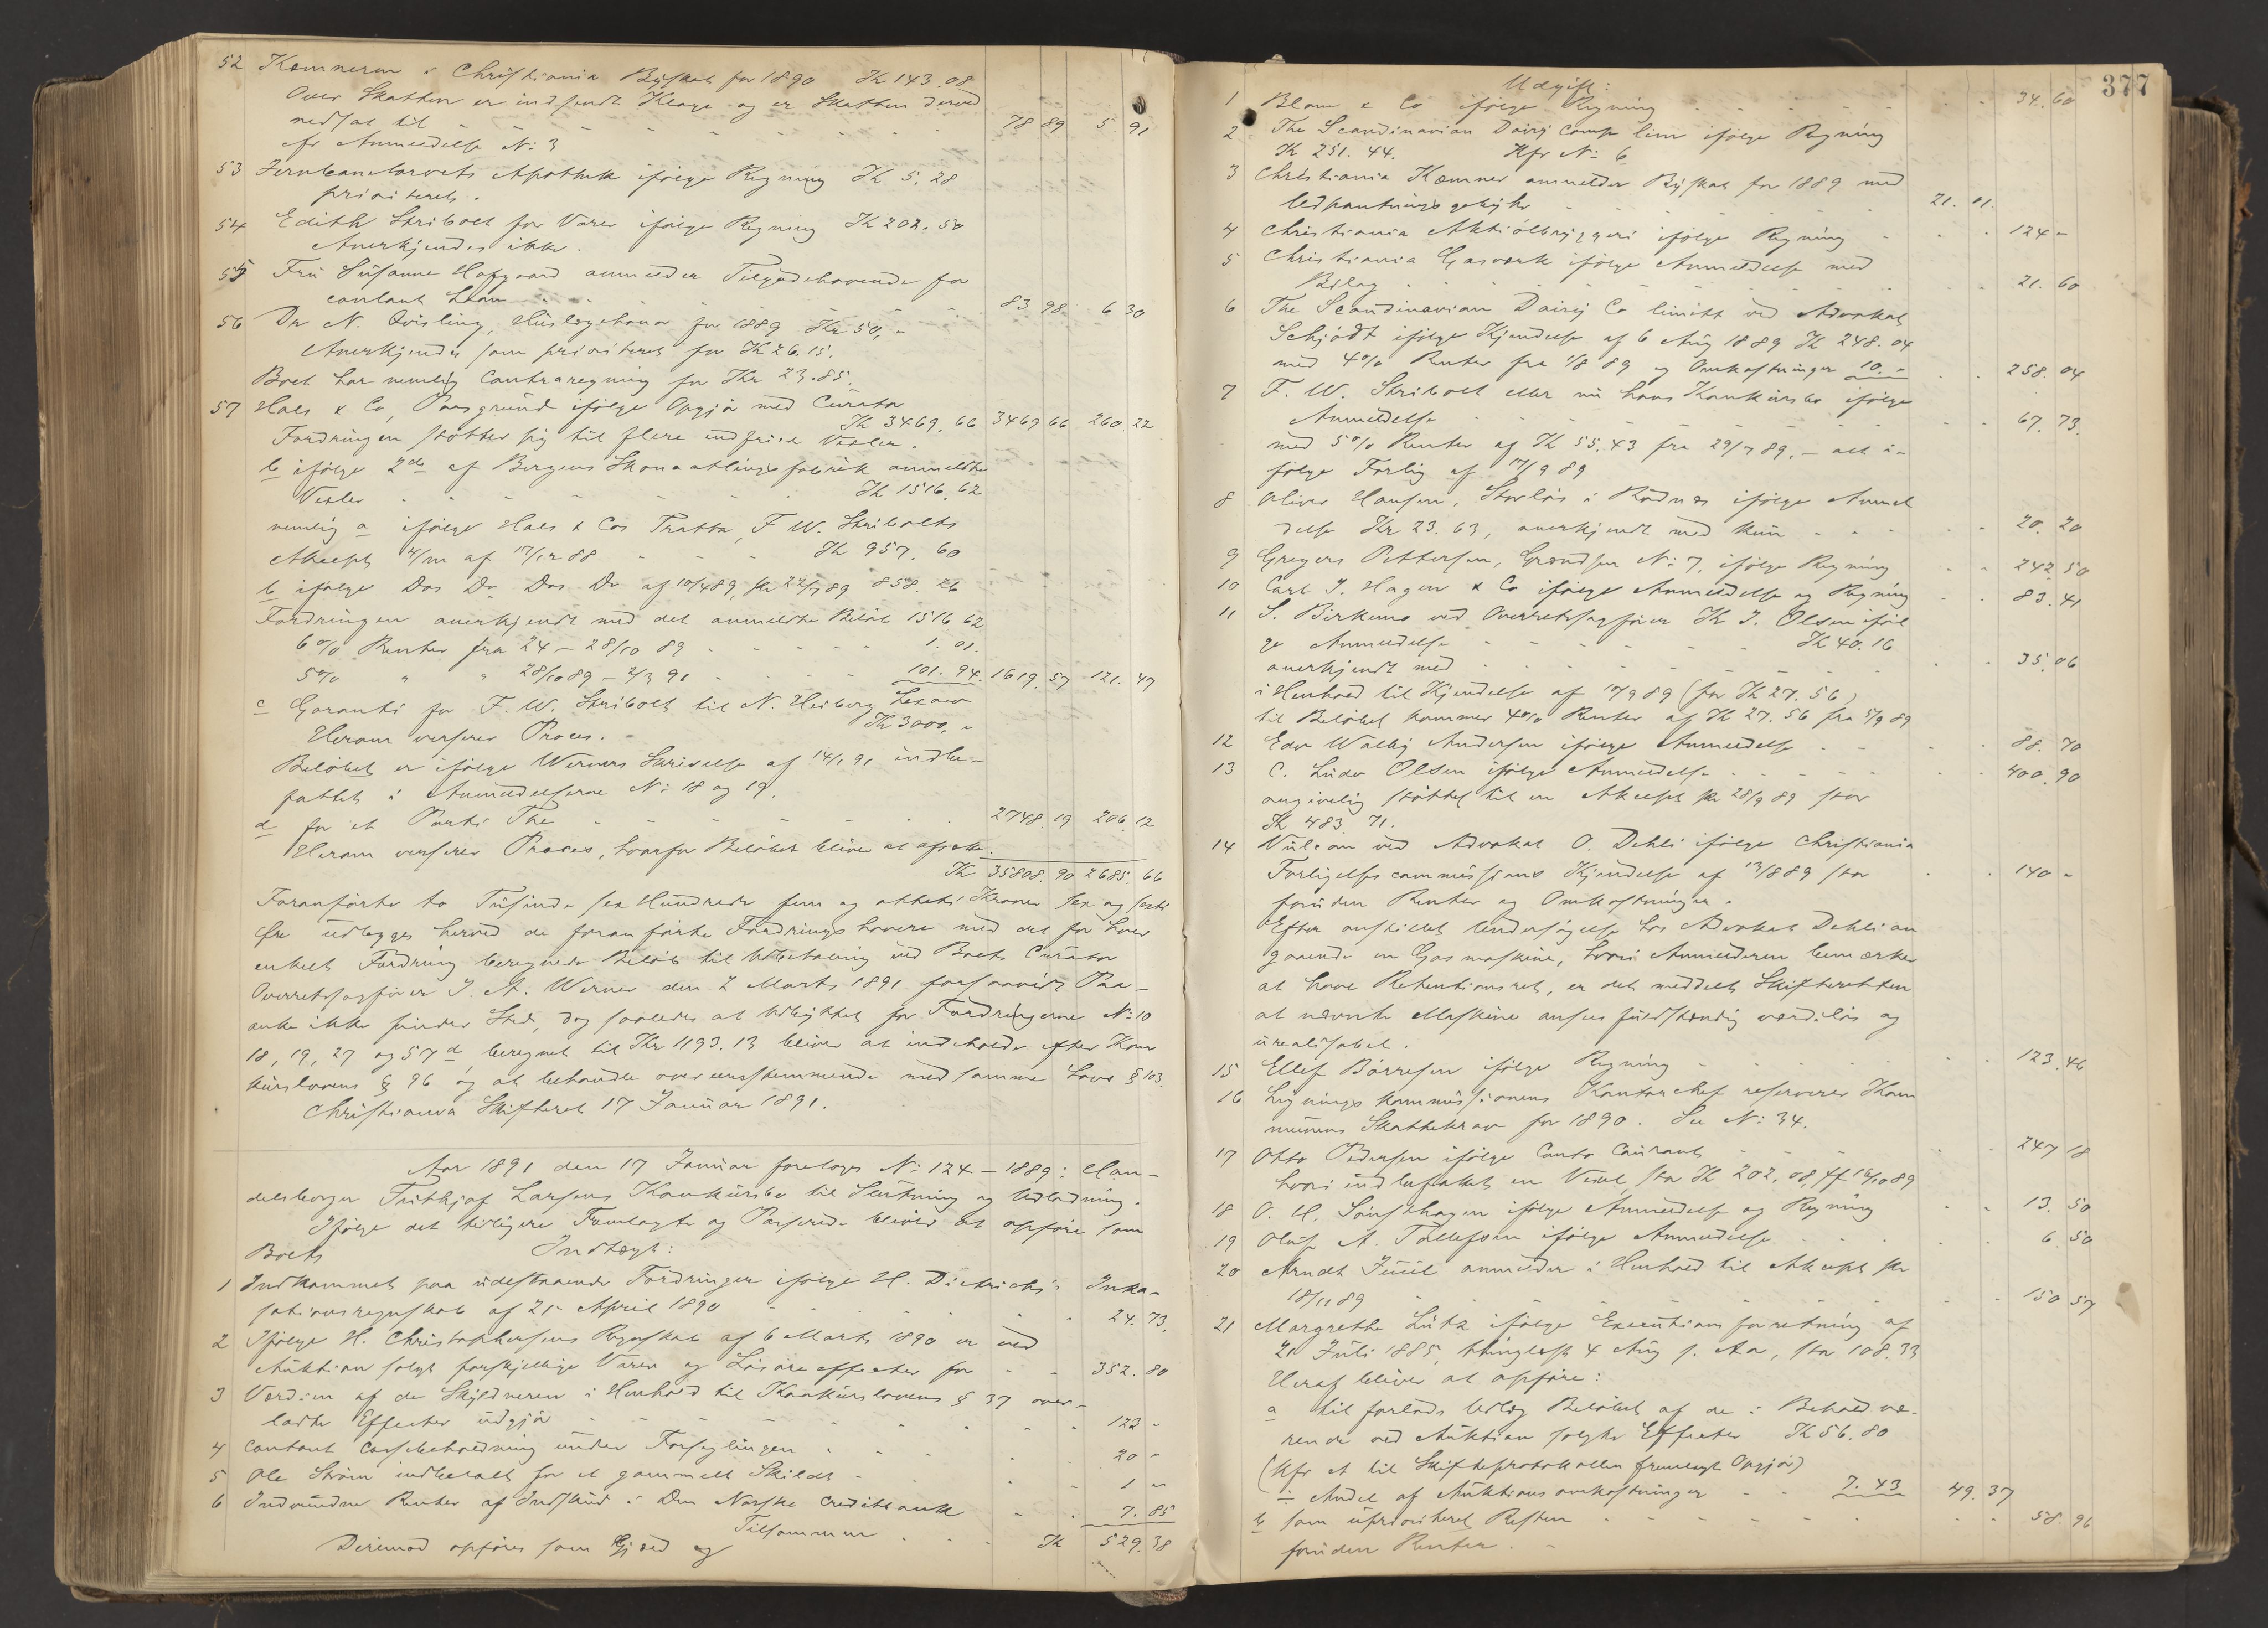 52 Kæmneren i Christiania Byskat for 1890 Kr 143.08
Over Skatten er indsendt Klage og er Skatten derved
nedsat til - - - - - - 78 89 5. 91
cfr Anmeldelse No 3
53 Jernbanetorvets Apothek ifølge Regning Kr 5.28
prioriteret.
54 Edith Stribolt for Varer ifølge Regning Kr 202.50
Anerkjendes ikke.
55 Fru Susanne Hofgaard anmelder Tilgodehavende for
contant Laan - - - - 83. 98. 6 30
56 Dr N. Qvisling, Huslægehonor for 1889 Kr 50,-
Anerkjendes som prioriteret for Kr 26.15.
Boet har nemlig Contraregning for Kr 23.85.
57 Hals & Co, Porsgrund ifølge Opgjør med Curator
Kr 3469. 66 3469 66 260. 22
Fordringen støtter sig til flere indfriede Vexler.
b ifølge 2de af Bergens Skomagerfabrik anmeldte
Vexler - - - - - Kr 1516. 62
nemlig a ifølge Hals & Cos Tratta, F. W. Stribolts
Accept 4/m af 17/12 88 - - - Kr 957. 60
b ifølge Dos Do Dos Do af 10/4 89, pr 22/7 89 858. 26
Fordringen anerkjendt med det anmeldte Beløb 1516 62
6% Renter fra 24 - 28/10 89 - - - - 1. 01.
5% " " 28/10 89 - 2/3 91 - - - 101. 94. 1619. 57 121. 47
c Garanti for F. W. Stribolt til N. Heiberg Lexow
Kr 3000,-
Herom verserer Proces.
Beløbet er ifølge Werners Skrivelse af 14/1 91 indbe-
fattet i Anmeldelserne No 18 og 19.
d for et Parti The - - - - - 2748. 19 206. 12
Herom verserer Proces, hvorfor Beløbet bliver at afsætte.
Kr 35808. 90 2685. 66
Foranførte to Tusinde sex Hundrede fem og otteti Kroner sex og sexti
Øre udlægges herved de foranførte Fordringshavere med det for hver
enkelt Fordring beregnede Beløb til Udbetaling ved Boets Curator
Overretssagfører J. A. Werner den 2 Marts 1891 forsaavidt Paa-
anke ikke finder Sted, dog saaledes at Udlægget for Fordringerne No 10
18, 19, 27 og 57 d beregnet til Kr 1193.13 bliver at indeholde efter Kon
kurslovens § 96 og at behandle overensstemmende med samme Lovs § 103.
Christiania Skifteret 17 Januar 1891.
Aar 1891 den 17 Januar foretoges No 124 - 1889: Han-
delsborger Frithjof Larsens Konkursbo til Slutning og Udlodning.
Ifølge det tidligere Fremlagte og Passerede bliver at opføre som
Boets Indtægt:
1 Indkommet paa udestaaende Fordringer ifølge H. Dietrichs Inka-
sationsregnskab af 21 April 1890 - - - - 24. 73.
2 Ifølge H. Christophersens Regnskab af 6 Marts 1890 er ved
Auktion solgt forskjellige Varer og Løsøreeffecter for - - 352. 80
3 Værdien af de Skyldneren i Henhold til Konkurslovens § 37 over-
ladte Effecter udgjør - - - - - 123 -
4 Contant Cassebeholdning under Forseglingen - - - 20 -
5 Ole Strøm indbetalt for et gammelt Skildt - - - 1 -
6 Indvundne Renter af Indskud i Den Norske Creditbank - - 7. 85
Tilsammen - - - Kr 529. 38
Derimod opføres som Gjæld og
377
Udgift:
1 Blom & Co ifølge Regning - - - - - 34. 60
2 The Scandinavian Dairy Comp lim ifølge Regning
Kr 251. 44. Kfr No 6
3 Christiania Kæmner anmelder Byskat for 1889 med
Udpantningsgebyhr - - - - - 21. 01.
4 Christiania Aktiølbryggeri ifølge Regning - - - 124 -
5 Christiania Gasværk ifølge Anmeldelse med
Bilag - - - - - 21. 60
6 The Scandinavian Dairy Co limitt ved Advokat
Schjødt ifølge Kjendelse af 6 Aug 1889 Kr 248. 04
med 4% Renter fra 1/8 89 og Omkostninger 10. - - - 258. 04
7 F. W. Stribolt eller nu hans Konkursbo ifølge
Anmeldelse - - - - - 67. 73.
med 5% Renter af Kr 55. 43 fra 29/7 89, - alt i-
følge Forlig af 17/9 89
8 Oliver Hansen, Storløs i Rødnæs ifølge Anmel
delse Kr 23. 63, anerkjendt med kun - - - 20. 20
9 Gregers Pettersen, Grændsen No 7, ifølge Regning - - 242. 50
10 Carl J. Hagen & Co ifølge Anmeldelse og Regning - - 83. 41
11 S. Birkemo ved Overretssagfører Kr J. Olsen iføl
ge Anmeldelse - - - - - Kr 40. 16
anerkjendt med - - - - - 35. 06
i Henhold til Kjendelse af 17/9 89 (for Kr 27. 56)
til Beløbet kommer 4% Renter af Kr 27. 56 fra 5/9 89
12 Edv Walby Andersen ifølge Anmeldelse - - - 88. 70
13 C. Luder Olsen ifølge Anmeldelse - - - - 400. 90
angivelig støttet til en Accept pr 28/9 89 stor
Kr 483. 71.
14 Vulcan ved Advokat O. Dehli ifølge Christiania
Forligelsescommissions Kjendelse af 13/8 89 stor - - 140 -
foruden Renter og Omkostninger.
Efter anstillet Undersøgelse hos Advokat Dehli an
gaaende en Gasmaskine, hvori Anmelderen bemærker
at have Retentionsret, er det meddelt Skifteretten
at nævnte Maskine ansees fuldstændig værdiløs og
urealisabel.
15 Ellef Børresen ifølge Regning - - - - 123. 46
16 Ligningskommissionens Kontorchef reserverer Kom
munens Skattekrav for 1890. Se No 34.
17 Otto Pedersen ifølge Conto Courant - - - - 247 18
hvori indbefattet en Vexel, stor Kr 202. 08, pr 16/10 89
18 O. H. Sønsthagen ifølge Anmeldelse og Regning - - 13. 50
19 Oluf A. Tollefsen ifølge Anmeldelse - - - 6. 50
20 Arndt Juul anmelder i Henhold til Accept pr
18/11 89 - - - - - 150 57
21 Margrethe Lutz ifølge Executionsforretning af
21 Juli 1885, thinglæst 4 Aug s. Aa, stor 108. 33
Heraf bliver at opføre:
a til forlods Udlæg Beløbet af de i Behold væ-
rende ved Auktion solgte Effecter Kr 56. 80
(Kfr et til Skifteprotokollen fremlagt Opgjør)
÷ Andel af Auktionsomkostninger - - 7. 43 49. 37
b som uprioriteret Resten - - - - - 58. 96
foruden Renter. -